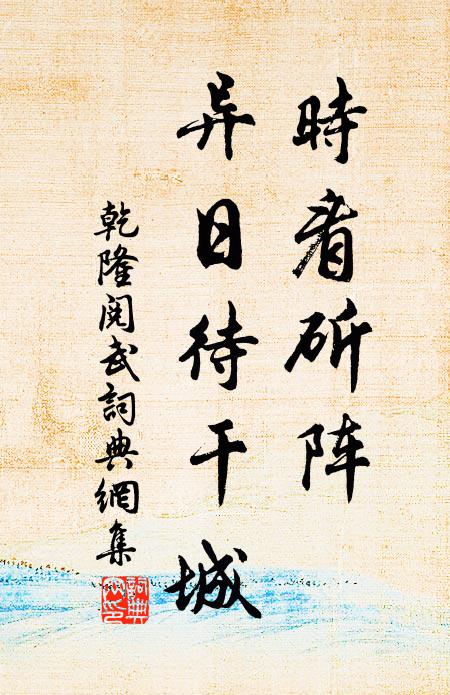 時看斫阵
异日待干城
乾隆閱武詞典網集